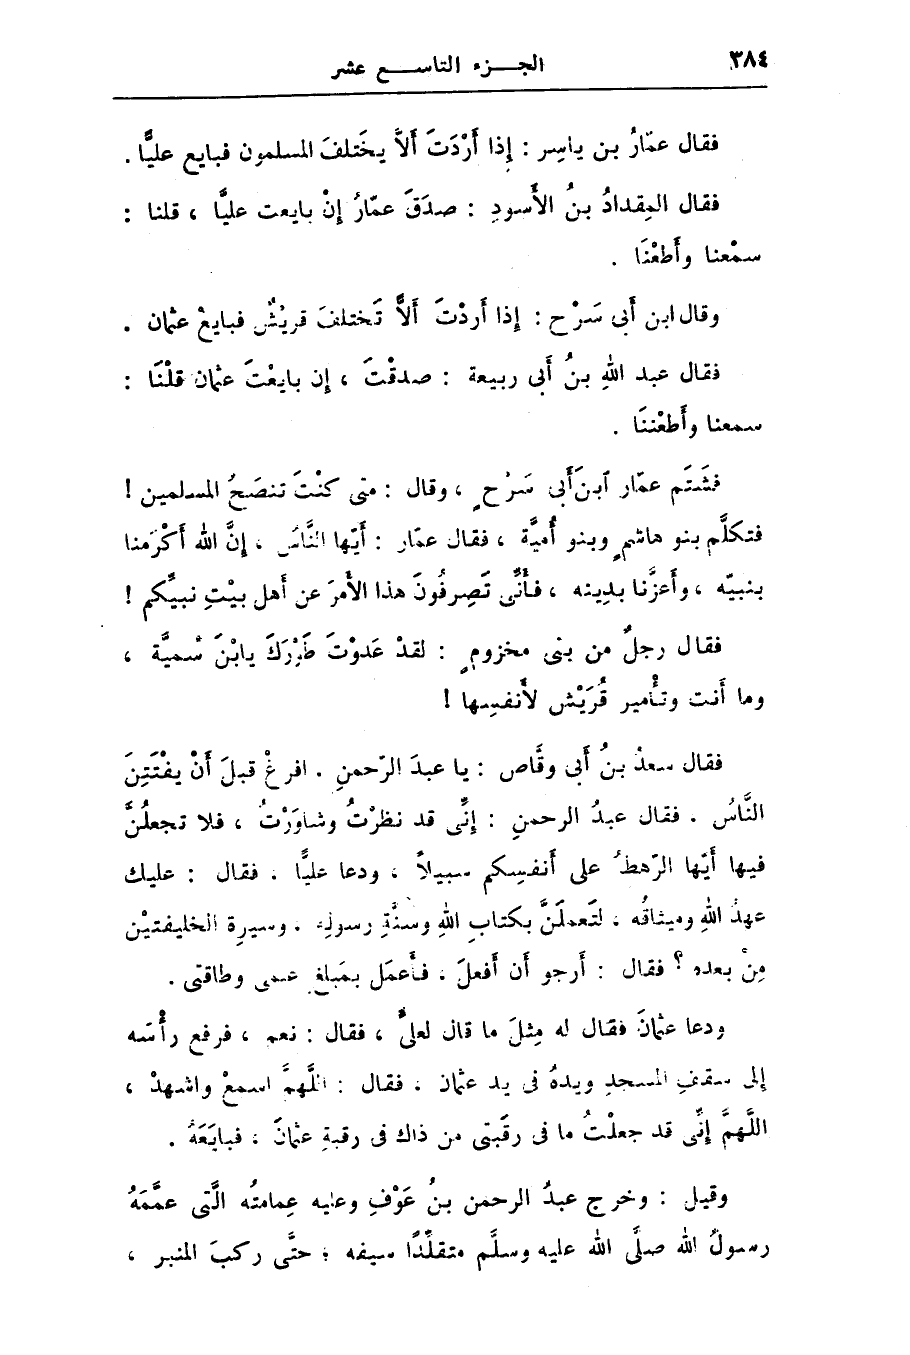 ٣٨٤
الجـــزء التاســـع عشر
فقال عمّارُ بن ياسِر : إذا أَرْدَتَ أَلاَّ يخَتلفَ المسلمون فبايع عليًّا .
فقال المِقدادُ بنُ الأَسودِ : صدَقَ عمّارُ إنْ بايعت عليًّا ، قلنا :
سمْعنا وأَطعْنَا .
وقال ابن أَبى سَرْح : إذا أَردْتَ أَلاَّ تَختلفَ قريْشٌ فبايعْ عثمان .
فقال عبد اللهِ بنُ أَبى ربيعة : صدقْتَ ، إن بايعْتَ عثمان قلْنَا :
سمعنا وأَطعْننَا .
فشَتَم عمّار ابنَ أَبى سَرْحٍ ، وقال : متى كنْتَ تنصَحُ المسلمين !
فتكلَّم بنو هاشمٍ وبنو أُميَّة ، فقال عمّار : أَيّها النَّاسُ ، إنَّ الله أَكْرَمنا
بنبيّه ، وأَعزَّنا بدينه ، فأَنَّى تَصِرفُونَ هذا الأَمرَ عن أَهل بيْتِ نبيّكم !
فقال رجلٌ من بنى مخزومٍ : لقدْ عَدوْتَ طَوْرَكَ يابْنَ سُميَّة ،
وما أَنت وتأْمير قُرَيْش لأَنفسِها !
فقال سعدُ بنُ أَبى وقَّاص : يا عبدَ الرّحمنِ . افرغْ قبلَ أَنْ يفْتَتِنَ
النَّاسُ . فقال عبدُ الرحمنِ : إنِّى قد نظرْتُ وشاوَرْتُ ، فلا تجعلُنَّ
فيها أَيّها الرّهطُ على أَنفسِكم سبيلاً ، ودعا عليًّا ، فقال : عليك
عهدُ اللهِ وميثاقُه ، لتَعملَنَّ بكتابِ اللهِ وسنَّةِ رسولِه ، وسيرة الخليفتيْن
مِنْ بعده ؟ فقال : أَرجو أَن أَفعلَ ، فأَعمَل بمَبلغِ علمى وطاقتى .
ودعا عثمانَ فقال له مِثلَ ما قال لعلىٍّ ، فقال : نعم ، فرفع رأْسَه
إلى سقفِ المسجدِ ويدهُ فى يد عثمان ، فقال : اللَّهمَّ اسمعْ واشهدْ ،
اللَّهمَّ إنِّى قد جعلْتُ ما فى رقَبتى من ذاك فى رقبةِ عثمانَ ، فبايَعَهُ .
وقيل : وخرج عبدُ الرحمن بنُ عَوْفٍ وعليه عِمامتُه الَّتى عمَّمَهُ
رسولُ الله صلَّى الله عليه وسلَّم متقلِّدًا سيفه ؛ حتَّى ركبَ المنبر ،